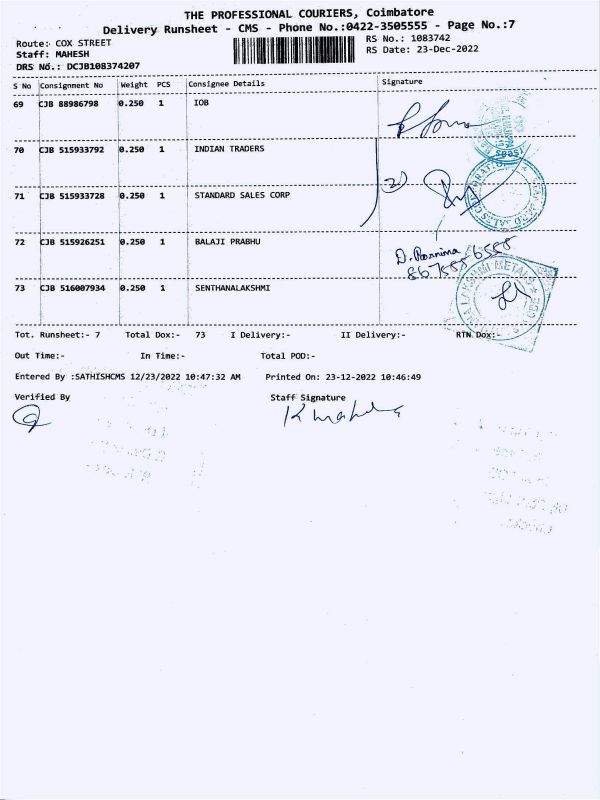 THE PROFESSIONAL COURIERS, Coimbatore
Delivery Runsheet - CMS - Phone No.:0422-3505555 - Page No.:7
Route: COX STREET
RS No.: 1083742
Staff: MAHESH
RS Date: 23-Dec-2022
DRS No.: DCJB108374207
S No Consignment No Weight PCS Consignee Details Signature
69 CJB 88986798 0.250 1 IOB
70 CJB 515933792 0.250 1 INDIAN TRADERS
71 CJB 515933728 0.250 1 STANDARD SALES CORP
72 CJB 515926251 0.250 1 BALAJI PRABHU
73 CJB 516007934 0.250 1 SENTHANALAKSHMI
Tot. Runsheet:- 7 Total Dox:- 73 I Delivery:- II Delivery:- RTN Dox:-
Out Time:- In Time:- Total POD:-
Entered By :SATHISHCMS 12/23/2022 10:47:32 AM Printed On: 23-12-2022 10:46:49
Verified By Staff Signature